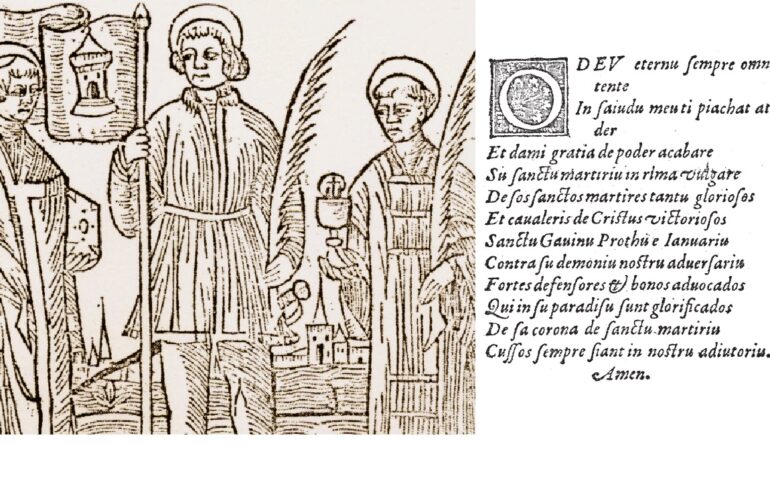 O DEU eternu sempre omn
tente
In saiudu meu ti piachat at
der
Et dami gratia de poder acabare
Su sanctu martiriu in rima vulgare
De sos sanctos martires tantu gloriosos
Et caualeris de Cristus victoriosos
Sanctu Gauinu Prothu e Ianuariu
Contra su demoniu nostru aduersariu
Fortes defensores & bonos aduocados
Qui in su paradisu sunt glorificados
De sa corona de sanctu martiriu
Cussos sempre siant in nostru adiutoriu.
Amen.